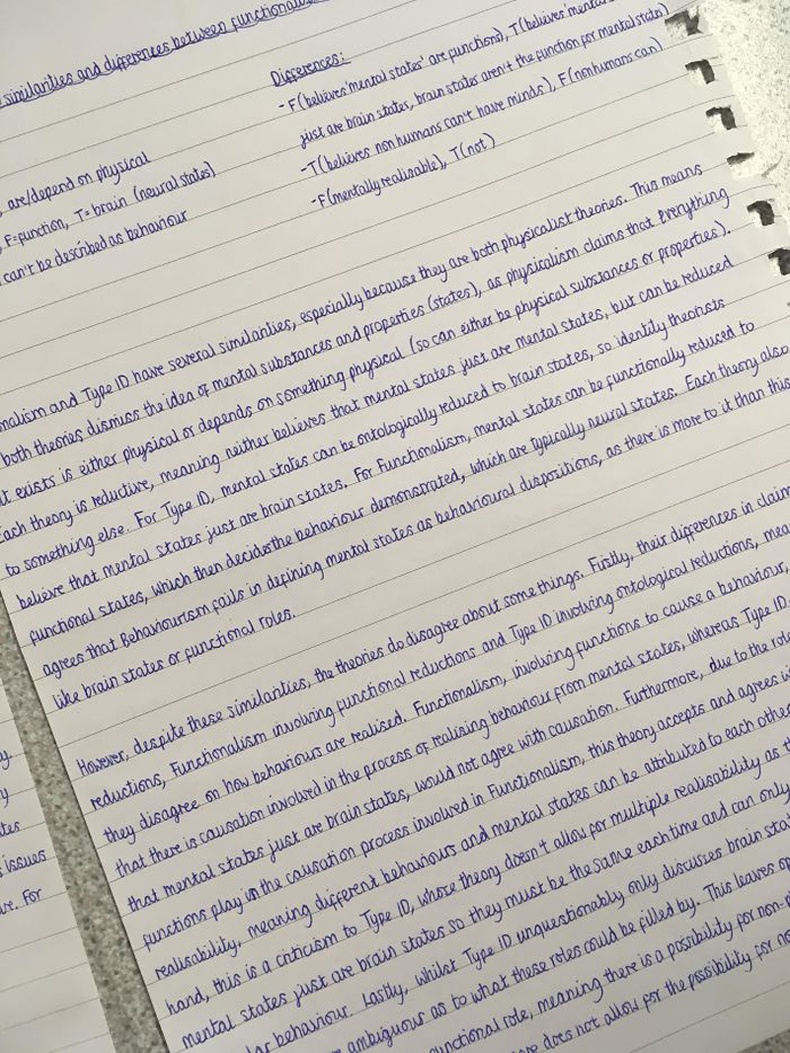 similarities and differences between functional
Differences:
- F (believes 'mental states' are functions), T (believes 'mental
just are brain states, brain states aren't the function for mental states)
-T (believes non humans can't have minds), F (nonhumans can)
-F (mentally realisable), T (not)
are/depend on physical
F=function, T= brain (neural states)
can't be described as behaviour
nalism and Type ID have several similarities, especially because they are both physicalist theories. This means
both theories dismiss the idea of mental substances and properties (states), as physicalism claims that everything
t exists is either physical or depends on something physical (so can either be physical substances or properties).
Each theory is reductive, meaning neither believes that mental states just are mental states, but can be reduced
to something else. For Type ID, mental states can be ontologically reduced to brain states, so identity theorists
believe that mental states just are brain states. For Functionalism, mental states can be functionally reduced to
functional states, which then decides the behaviour demonstrated, which are typically neural states. Each theory also
agrees that Behaviourism fails in defining mental states as behavioural dispositions, as there is more to it than this
like brain states or functional roles.
However, despite these similarities, the theories do disagree about some things. Firstly, their differences in claim
reductions, Functionalism involving functional reductions and Type ID involving ontological reductions, mea
they disagree on how behaviours are realised. Functionalism, involving functions to cause a behaviour,
that there is causation involved in the process of realising behaviour from mental states, whereas Type ID
that mental states just are brain states, would not agree with causation. Furthermore, due to the role
functions play in the causation process involved in Functionalism, this theory accepts and agrees wi
realisability, meaning different behaviours and mental states can be attributed to each other
hand, this is a criticism to Type ID, whose theory doesn't allow for multiple realisability as th
mental states just are brain states so they must be the same each time and can only
lar behaviour. Lastly, whilst Type ID unquestionably only discusses brain stat
ambiguous as to what these roles could be filled by. This leaves op
unctional role, meaning there is a possibility for non-p
does not allow for the possibility for no
y
y
ates
issues
ve. For